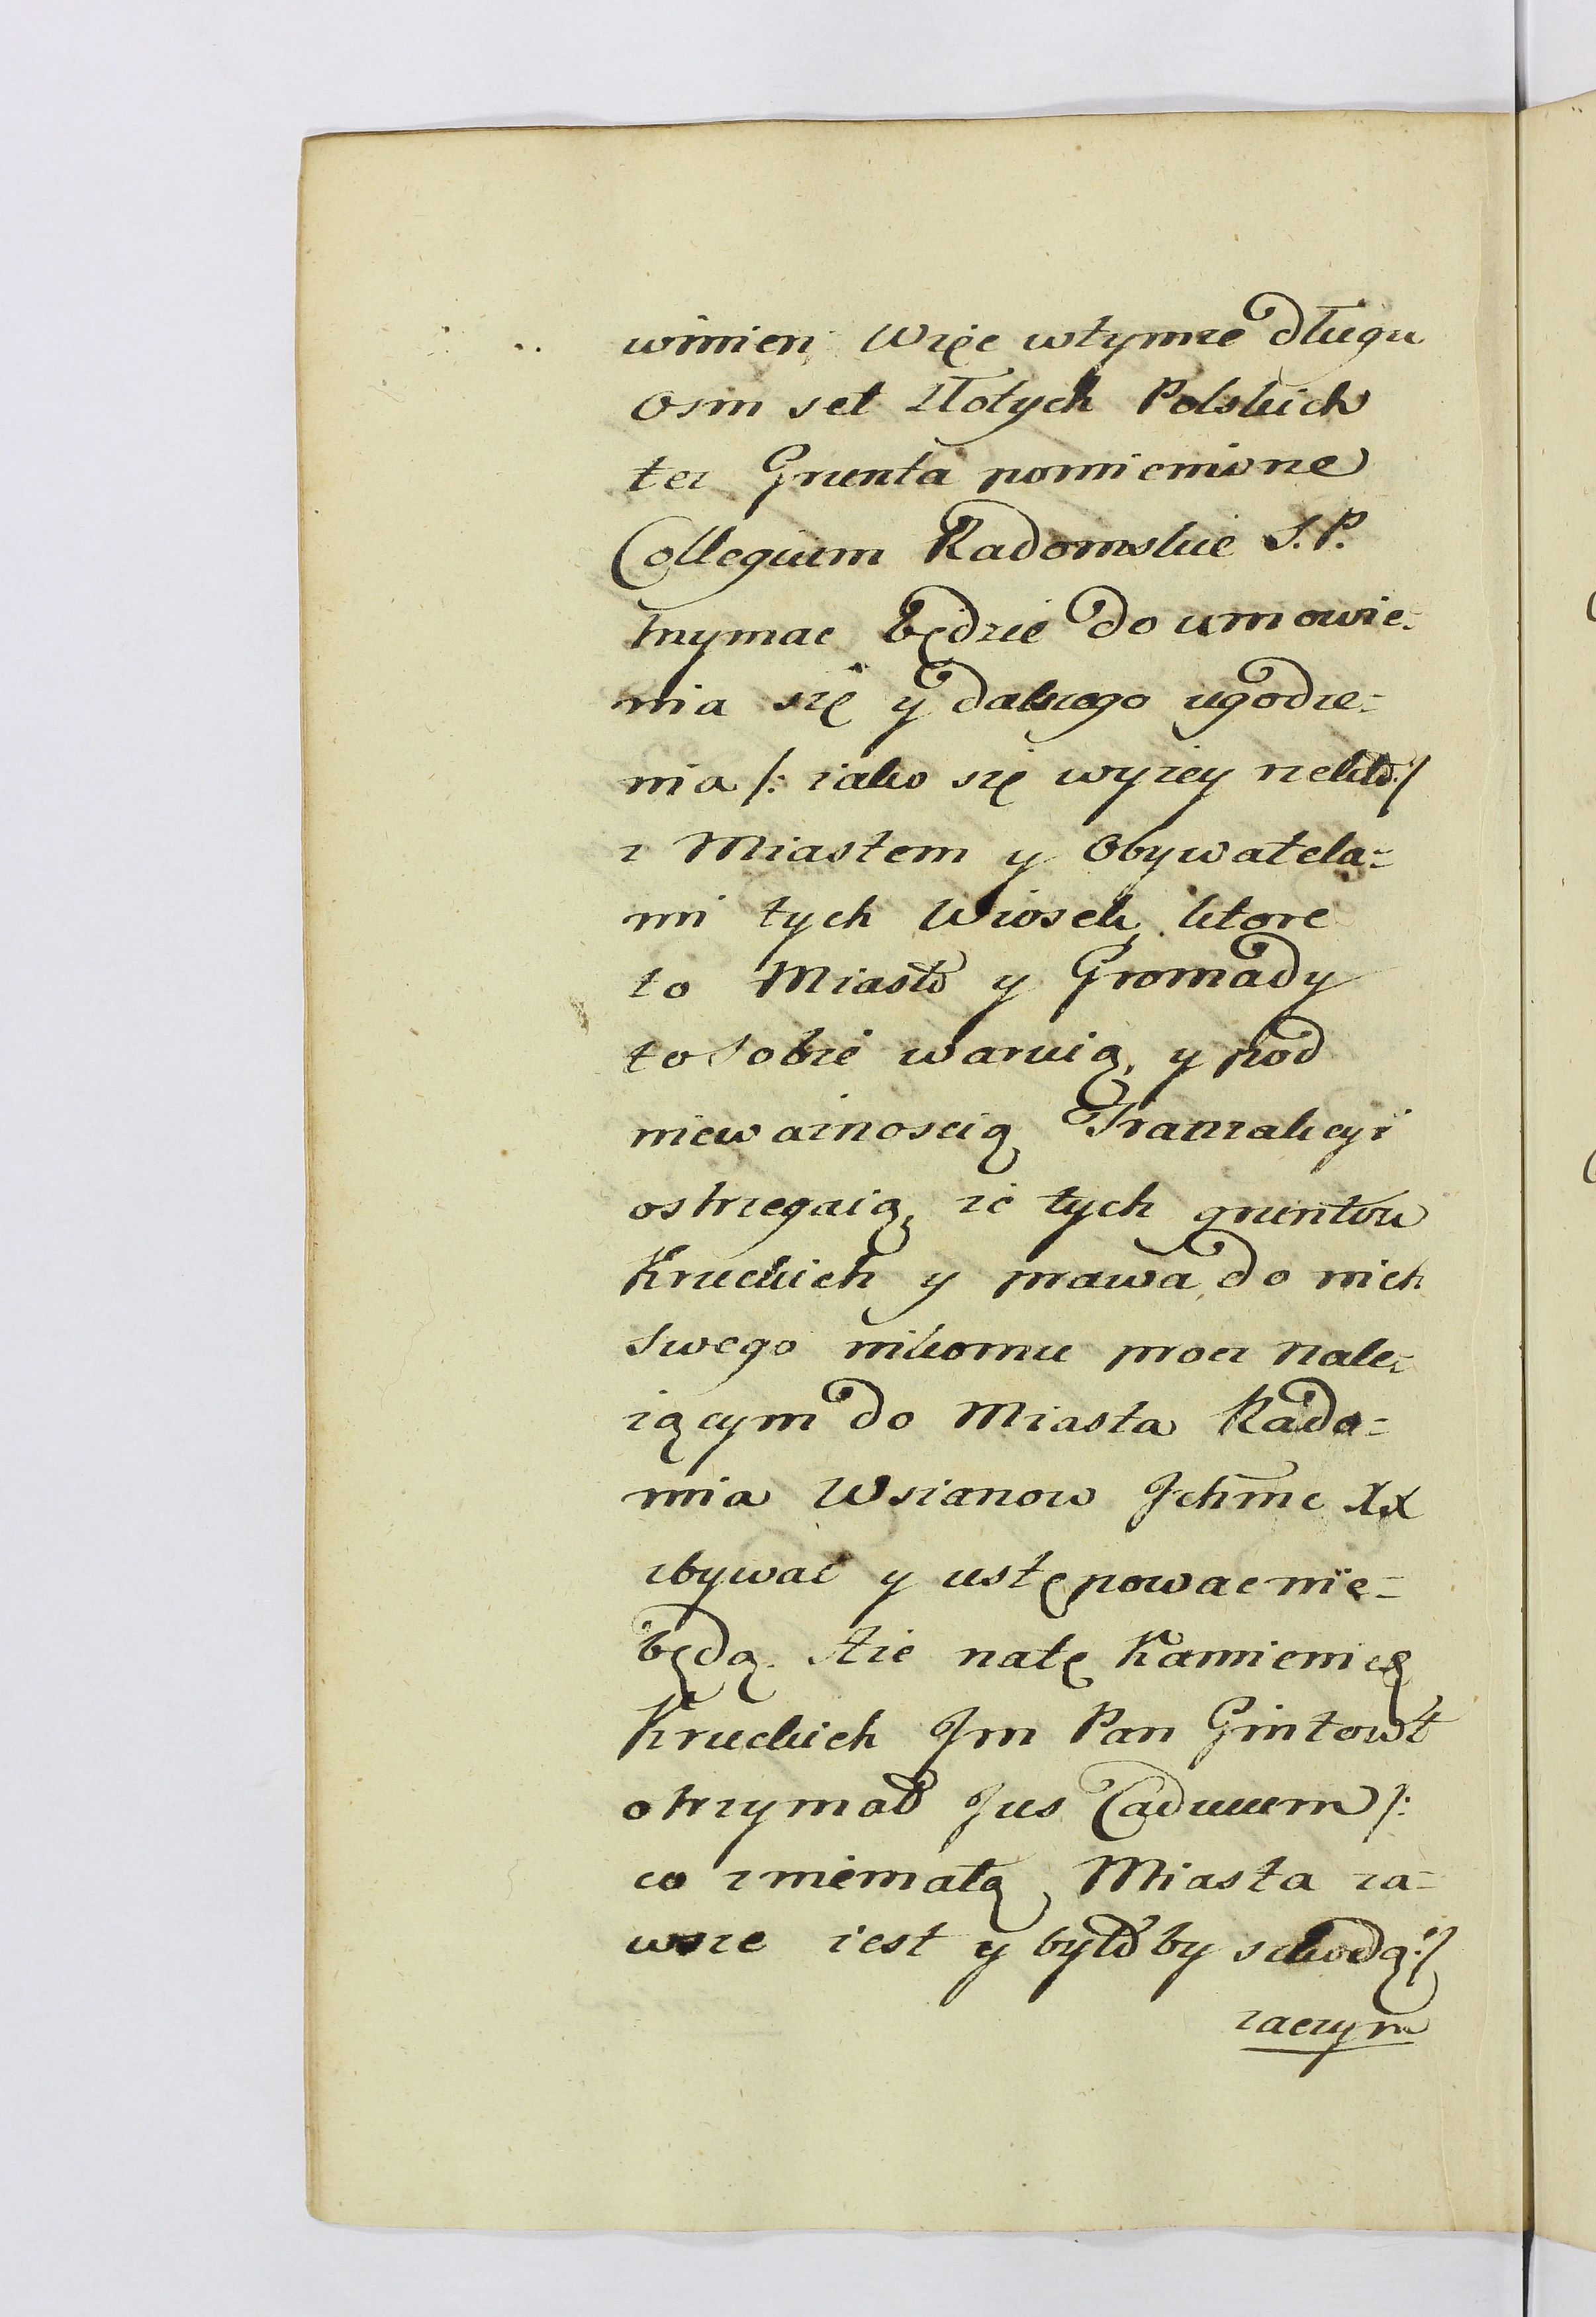 winien; Więc wtymze długu
Osm set Złotych Polskich
tez Grunta pomienione
Collegium Radomskie S. P.
trzymac będzie do umowie-
nia się y dalszego ugodze-
nia /: iako się wyzey rzekło :/
z Miastem y Obywatela-
mi tych Wiosek, ktore
to Miasto y Gromady
to Sobie waruią, y pod
niewaznoscią Tranzakcyi
ostrzegaią, ze tych gruntow
Kruckich y prawa do nich
Swego nikomu procz Nale-
zącym do Miasta Rado-
mia Wsianow Jchmc XX
zbywać y ustępowac nie-
będą. Aże natę Kamienicę
Kruckich Jm Pan Gintowt
otrzymał Jus Caducum /:
co z niemałą Miasta za-
wsze iest y byłoby szkodą :/
zaczym